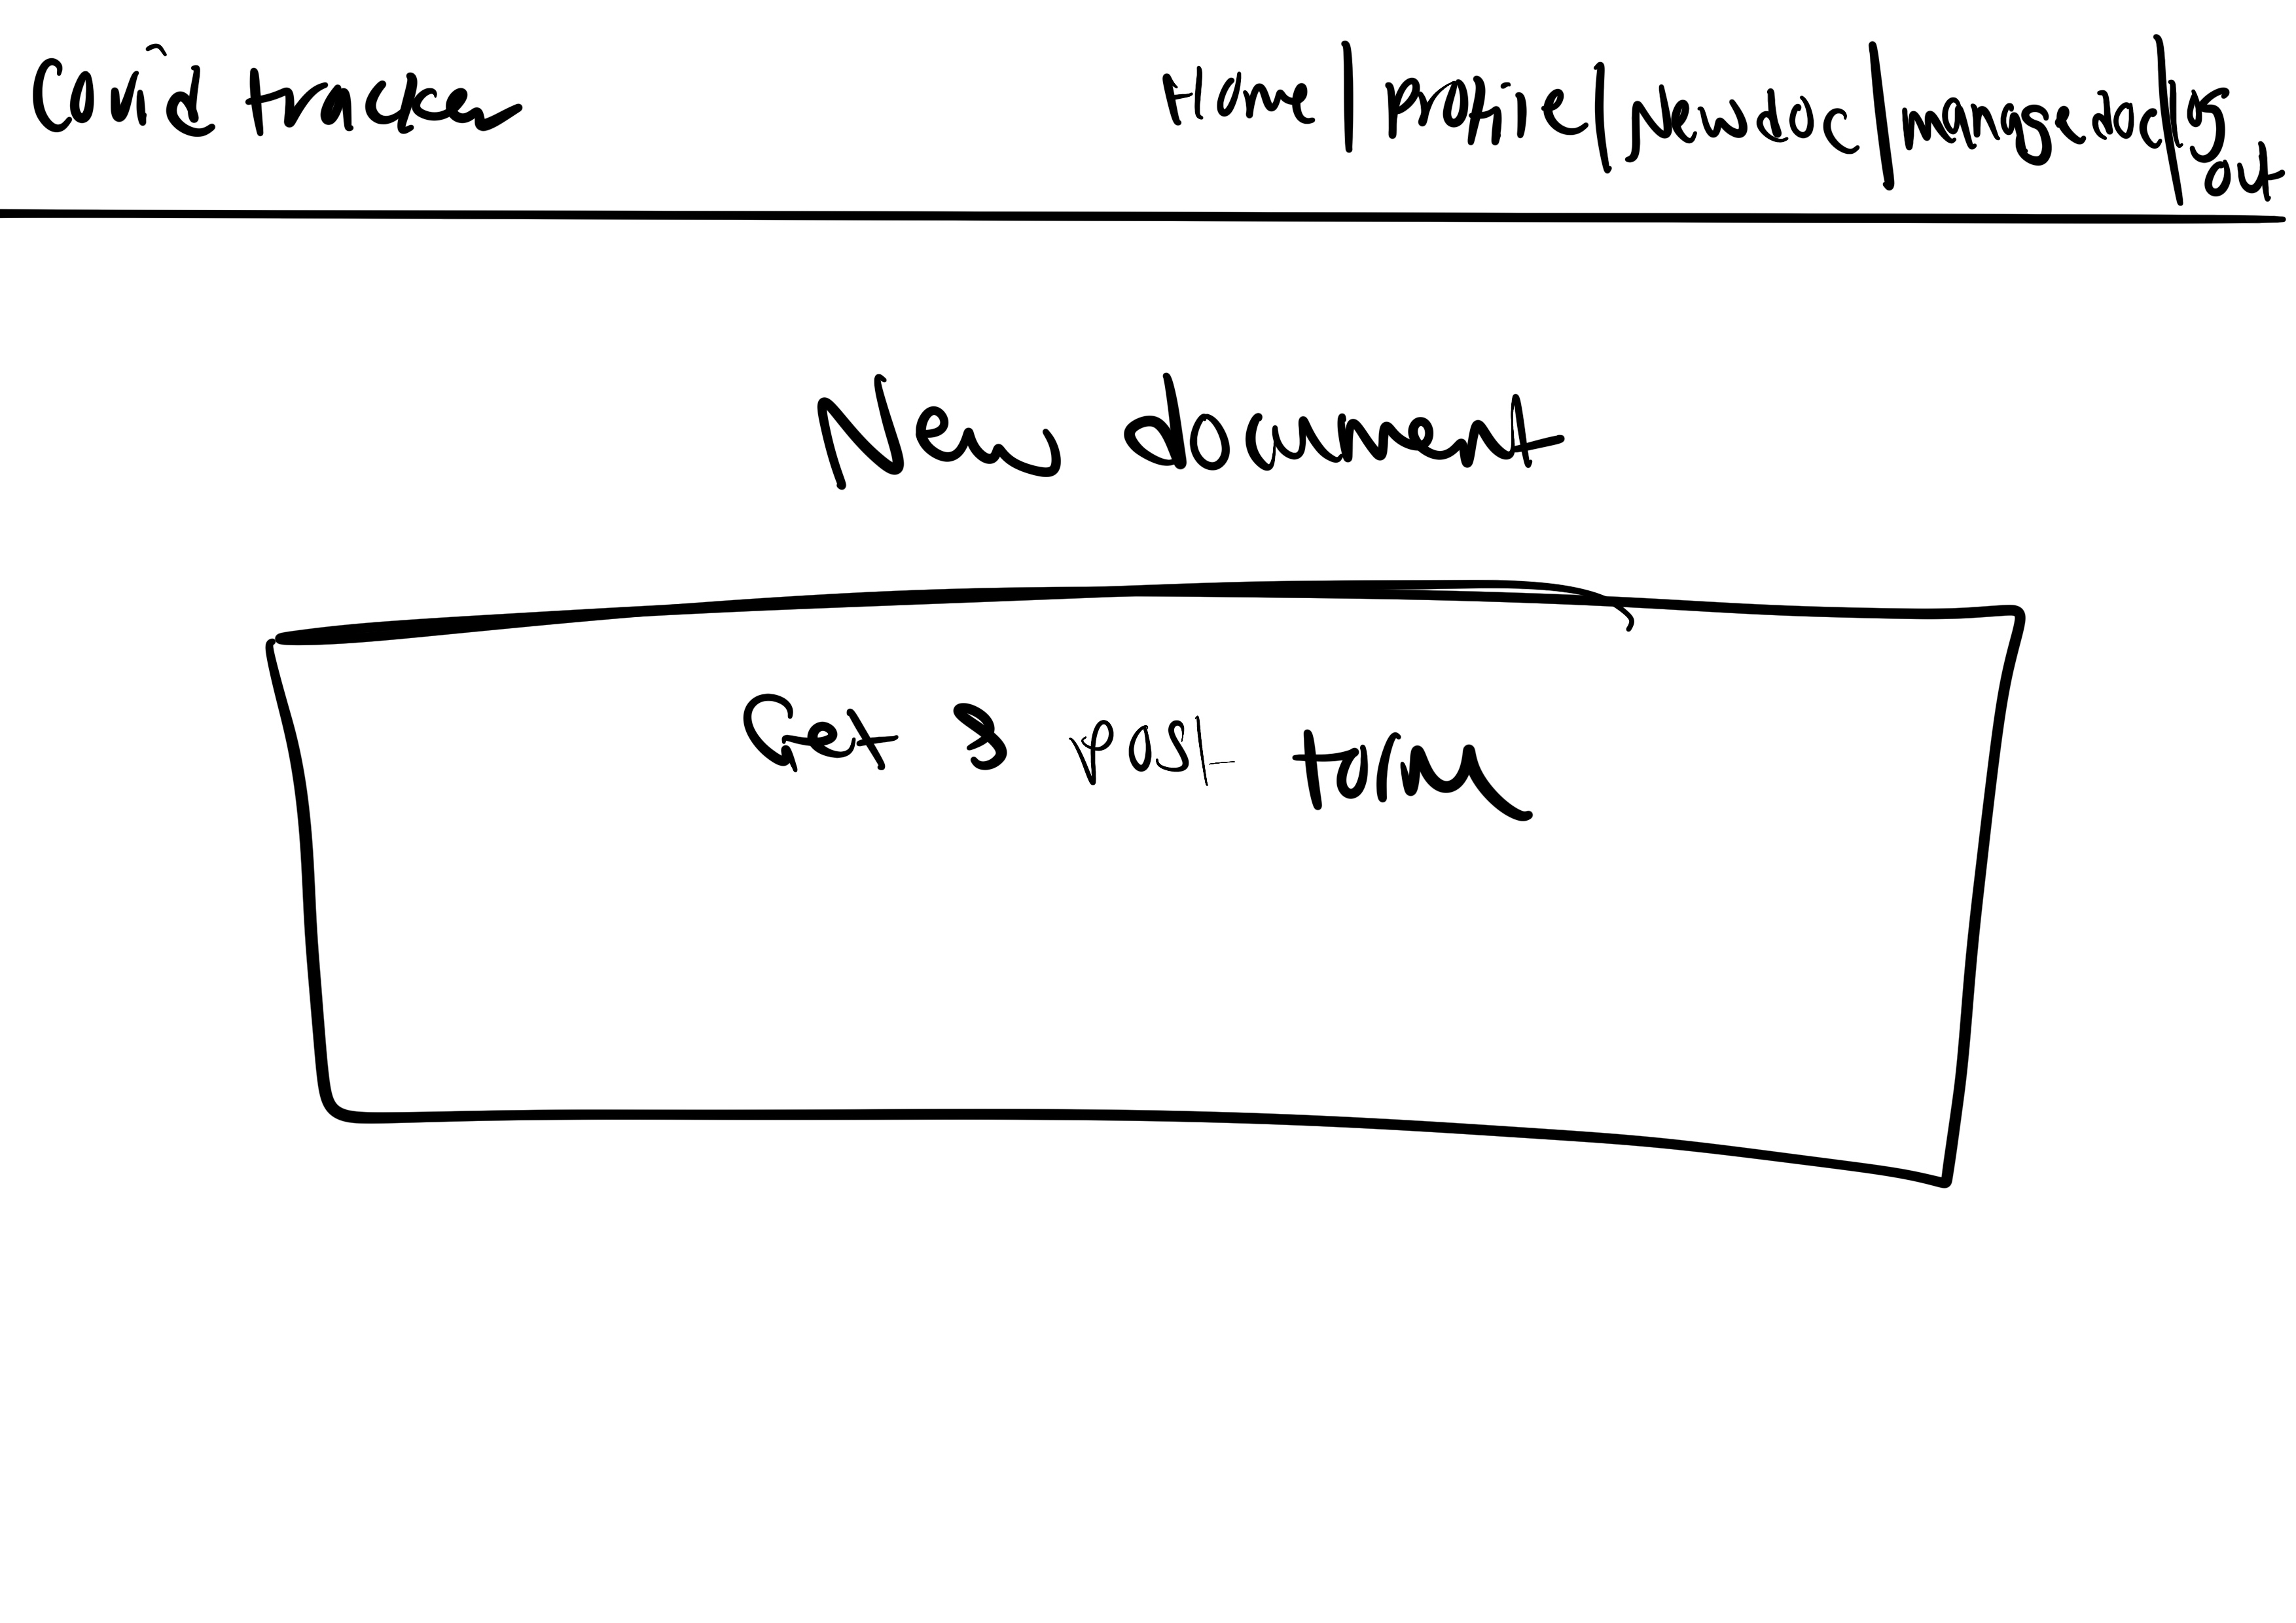 Covid tracker Home | profile | New doc | manage doc | log out
New document
Get & post form